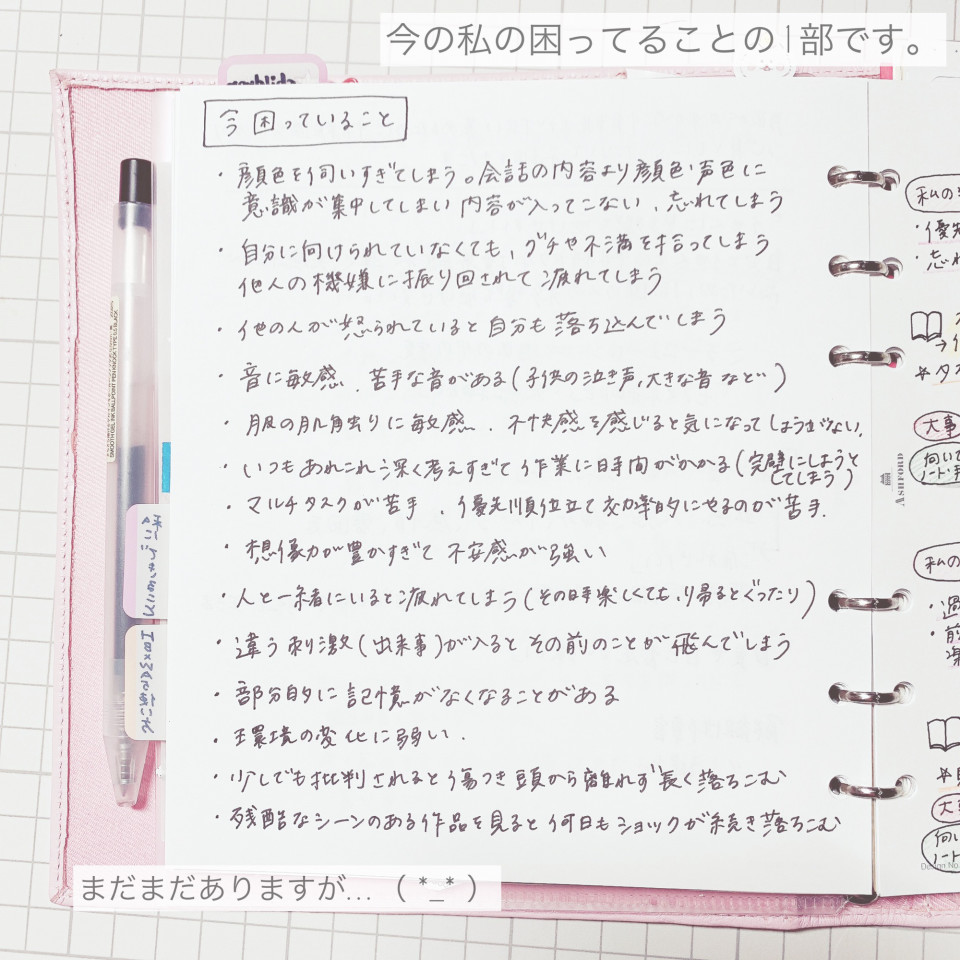 今の私の困ってることの1部です。
children
今困っていること
・顔色を伺いすぎてしまう。会話の内容より顔色・声色に
意識が集中してしまい内容が入ってこない、忘れてしまう
・自分に向けられていなくても、グチや不満を拾ってしまう
他人の機嫌に振り回されて疲れてしまう
・他の人が怒られていると自分も落ち込んでしまう
・音に敏感、苦手な音がある(子供の泣き声、大きな音など)
・服の肌触りに敏感、不快感を感じると気になってしょうがない。
・いつもあれこれ深く考えすぎて作業に時間がかかる(完璧にしようと
してしまう)
・マルチタスクが苦手、優先順位立て効率的にやるのが苦手。
・想像力が豊かすぎて不安感が強い
・人と一緒にいると疲れてしまう(その時楽しくても、帰るとぐったり)
・違う刺激(出来事)が入るとその前のことが飛んでしまう
・部分的に記憶がなくなることがある
・環境の変化に弱い。
・少しでも批判されると傷つき頭から離れず長く落ちこむ
・残酷なシーンのある作品を見ると何日もショックが続き落ちこむ
SMOOTH GEL INK BALLPOINT PEN KNOCK TYPE 0.5 BLACK
Ashford
私の
・優先
・忘れ
大事
向いて
ノート・
私の
大事
ノート
Design No.
まだまだありますが…(*_*)